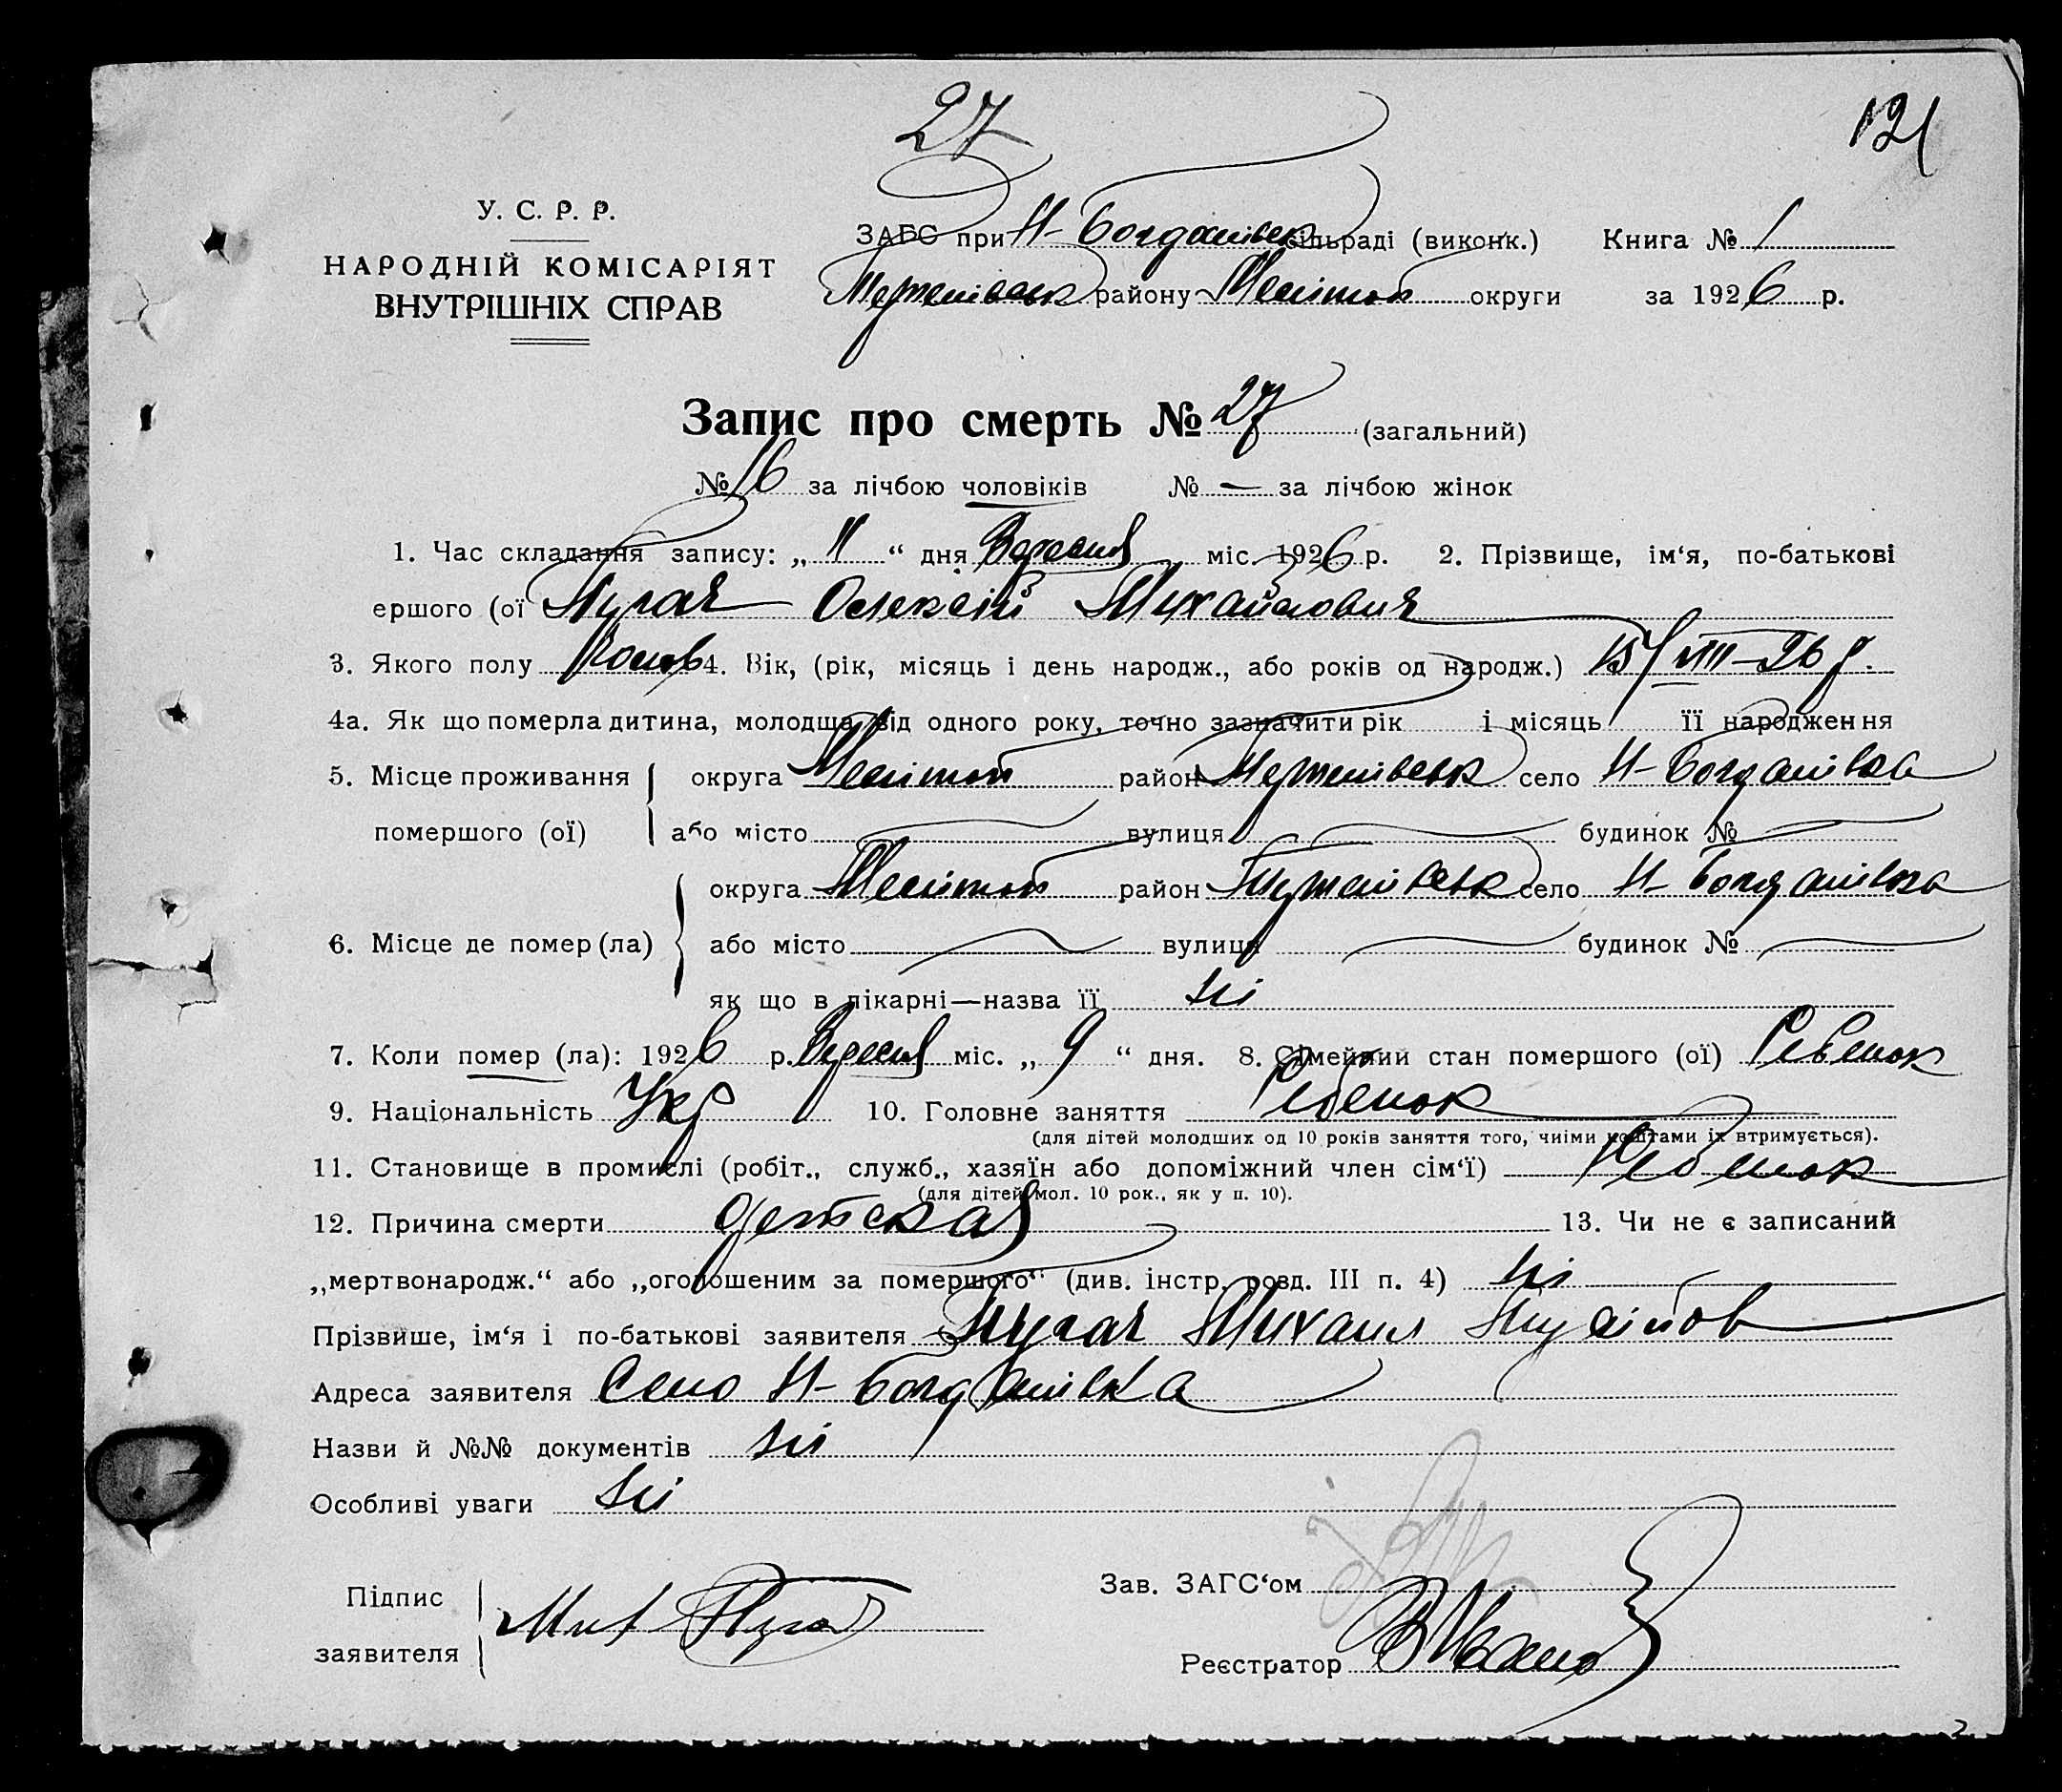 27
121
У. С. Р. Р.
НАРОДНІЙ КОМІСАРІЯТ
ВНУТРІШНІХ СПРАВ
ЗАГС при Н-Богданівськ сільраді (виконк.) Книга № 1
району Меліт округи за 1926 р.
Запис про смерть № 27 (загальний)
№ 16 за лічбою чоловіків № — за лічбою жінок
1. Час складання запису: „ 11 “ дня Вересня міс. 1926 р. 2. Прізвище, ім‘я, по-батькові
ершого (ої Пугач Олексій Михайлович
3. Якого полу 4. Вік, (рік, місяць і день народж., або років од народж.) 15/VIII-26 р.
4а. Як що померла дитина, молодша від одного року, точно зазначити рік і місяць її народження
5. Місце проживання округа район село Н-Богданівка
помершого (ої) або місто — вулиця — будинок № —
округа район село Н-Богданівка
6. Місце де помер (ла) або місто — вулиця — будинок № —
як що в лікарні—назва її ні
7. Коли помер (ла): 1926 р. Вересня міс. „ 9 “ дня. 8. Сімейний стан помершого (ої) Ребенок
9. Національність Укр 10. Головне заняття Ребенок
(для дітей молодших од 10 років заняття того, чиїми коштами їх втримується).
11. Становище в промислі (робіт., служб., хазяїн або допоміжний член сім‘ї) Ребенок
(для дітей мол. 10 рок., як у п. 10).
12. Причина смерти детская 13. Чи не є записаний
„мертвонародж.“ або „оголошеним за помершого“ (див. інстр. розд. III п. 4) ні
Прізвише, ім‘я і по-батькові заявителя Пугач Михаил
Адреса заявителя Село Н-Богданівка
Назви й №№ документів ні
Особливі уваги ні
Підпис
заявителя Мих Пугач
Зав. ЗАГС‘ом
Реєстратор
2